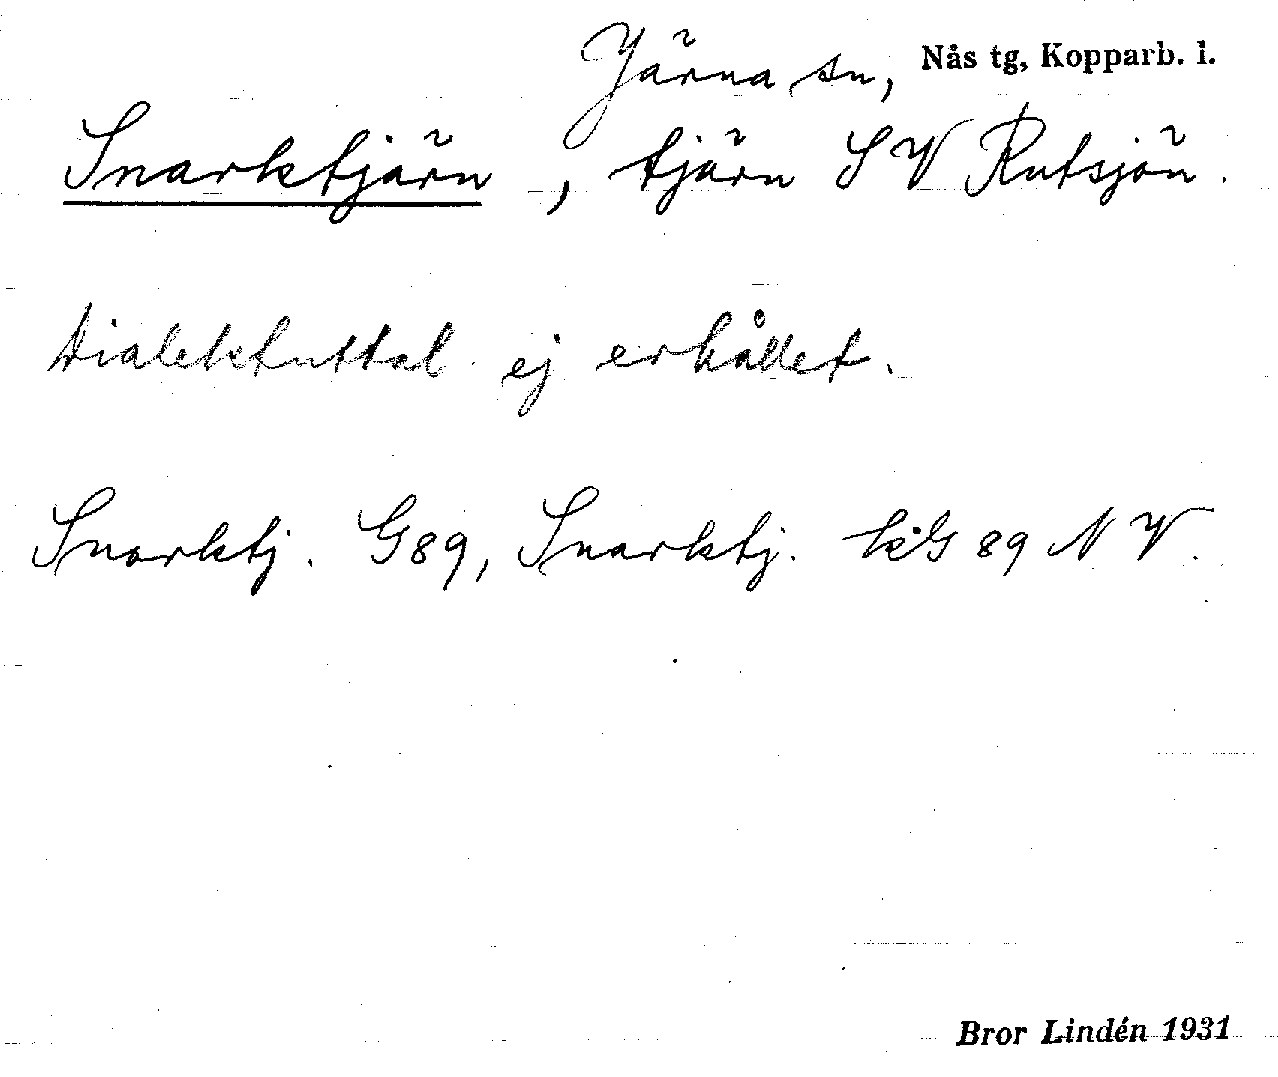 Järna sn, Nås tg, Kopparb. l.
Snarktjärn, tjärn SV Rutsjön.
Dialektuttal ej erhållet.
Snarktj. G89, Snarktj. kG 89 NV.
Bror Lindén 1931